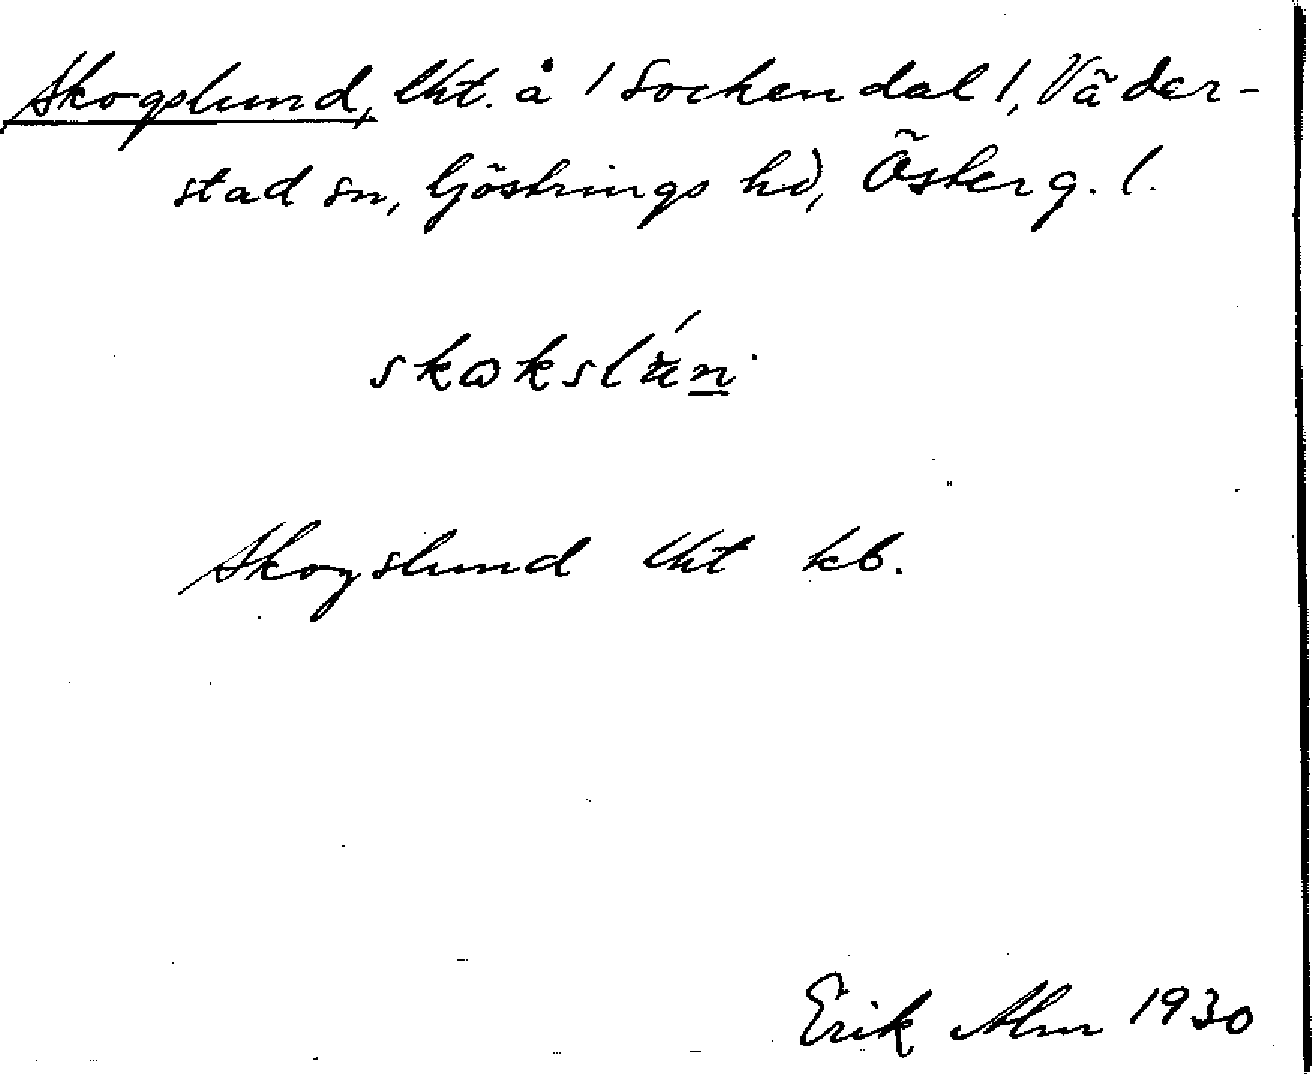 Skogslund, lht. å 1 Sockendal 1, Väder-
stad sn, Göstrings hd, Österg. l.
skɷkslún
Skogslund lht kb.
Erik Alm 1930